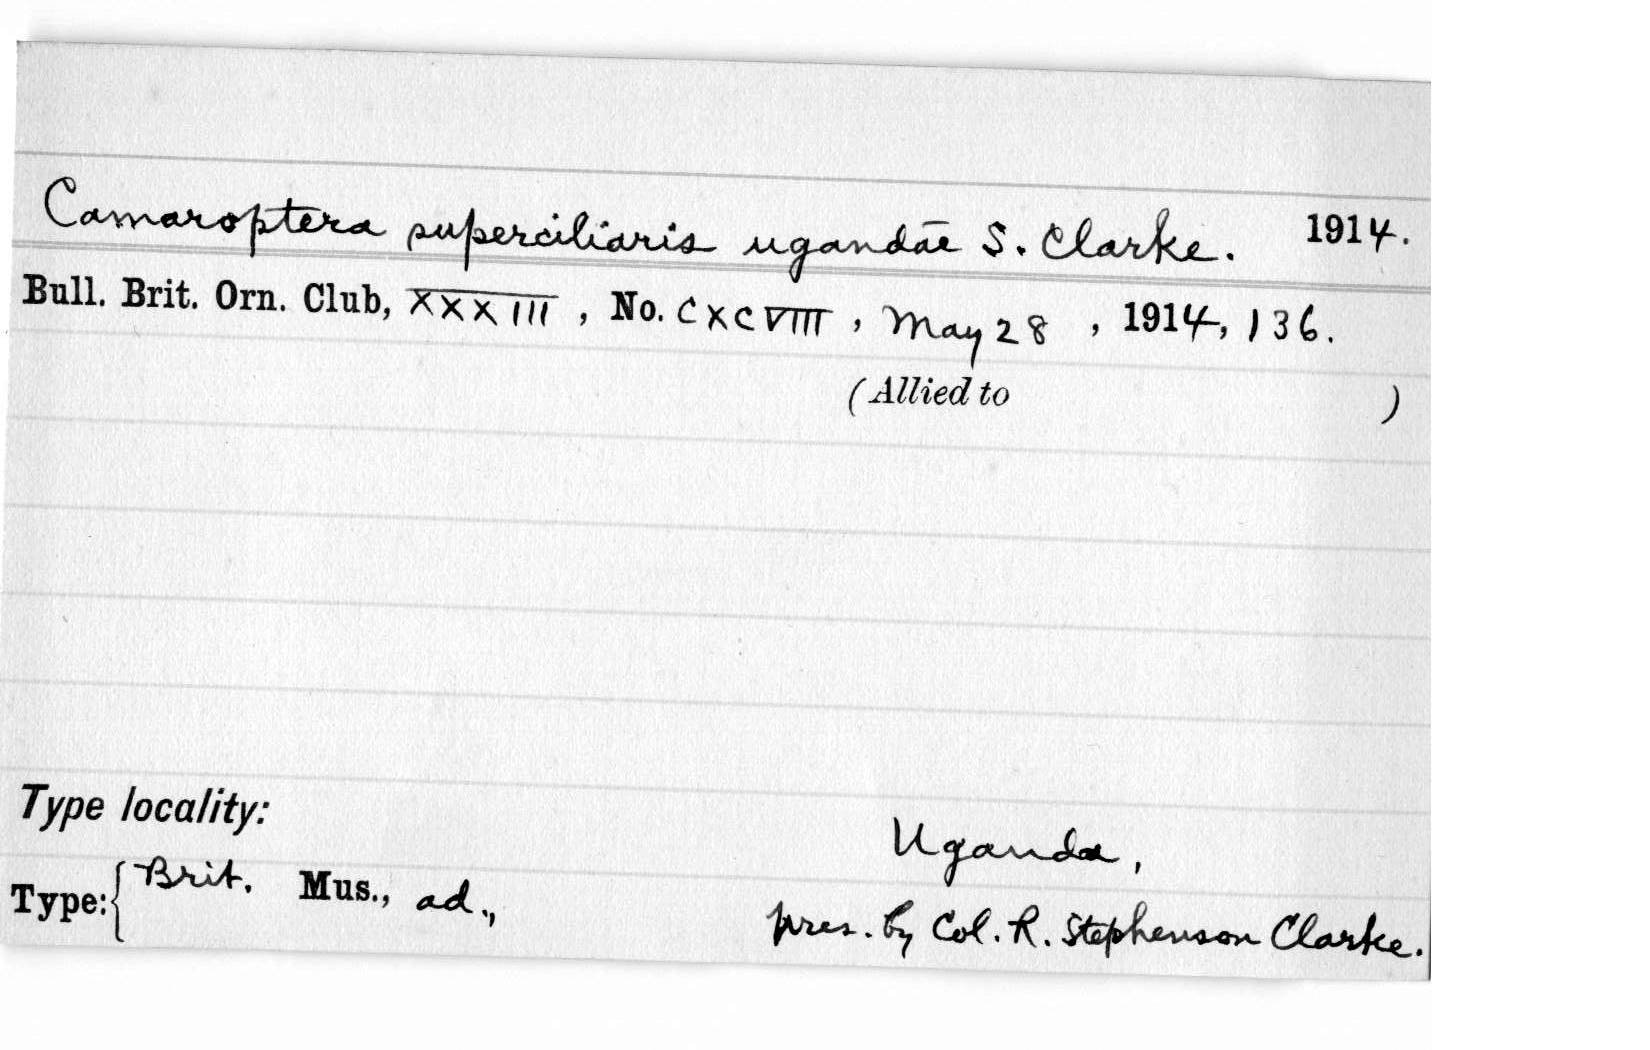 Camaroptera superciliaris ugandae S. Clarke. 1914.
Bull. Brit. Orn. Club, XXXIII, No. CXCVIII, May 28, 1914, 136.
(Allied to )
Type locality:
Uganda,
Type: { Brit. Mus., ad., pres. by Col. R. Stephenson Clarke.